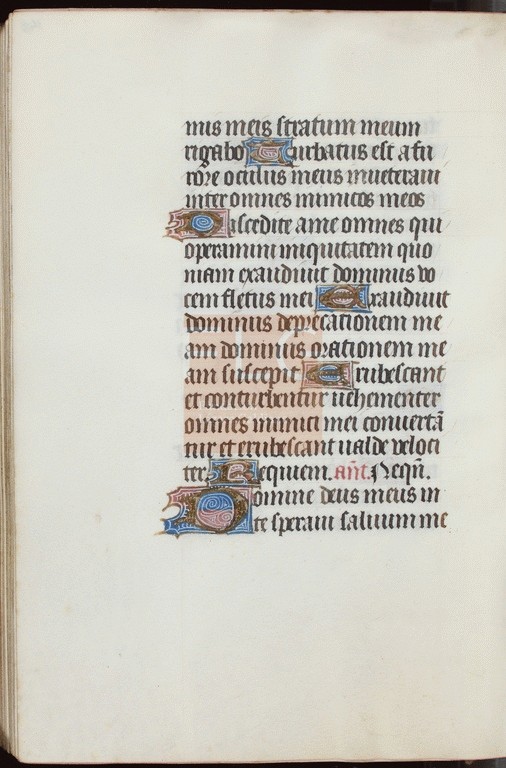 mis meis stratum meum
rigabo Turbatus est a fu
rore oculus meus inueteraui
inter omnes inimicos meos
Discedite a me omnes qui
operamini iniquitatem quo
niam exaudiuit dominus vo
cem fletus mei Exaudiuit
dominus deprecationem me
am dominus orationem me
am suscepit Erubescant
et conturbentur uehementer
omnes inimici mei conuertã
tur et erubescant ualde veloci
ter. Requiem. añt. Nequñ.
Domine deus meus in
te speraui saluum me